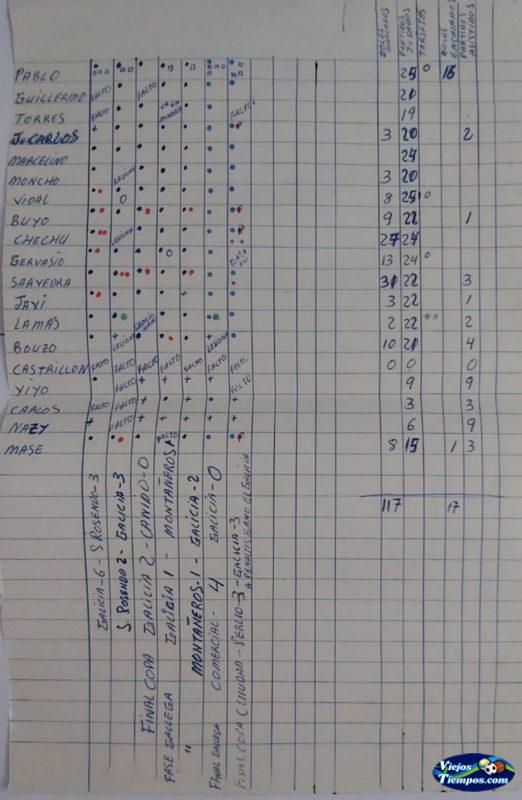 GOLES MARCADOS PARTIDOS JUGADOS TARJETAS GOLES ENCAJADOS PARTIDOS ASISTIDOS
PABLO 25 0 16
GUILLERMO FALTO FALTO 21
TORRES FALTO 19
J. CARLOS + 3 20 2
MARCELINO 24
MONCHO LESION 3 20
VIDAL 0 8 25 10
BUYO 9 22 1
CHECHU LESION 27 24
GERVASIO 0 13 24 0
SAAVEDRA 31 22 3
JAVI + 3 22 1
LAMAS 2 22 2
BOUZO LESION LESION 10 21 4
CASTRILLON FALTO FALTO FALTO FALTO FALTO FALTO FALTO 0 0 0
YIYO FALTO + + + + FALTO 9 9
CARLOS FALTO FALTO + + + + + 3 3
NAZY + FALTO + + + + + 6 9
MASE FALTO 8 15 1 3
117 17
GALICIA-6-S.ROSENDO-3
S. ROSENDO 2-GALICIA-3
FINAL COPA GALICIA 2-CANIDO-0
FASE GALLEGA GALICIA 1 - MONTAÑEROS 1
" MONTAÑEROS-1-GALICIA-2
FINAL GALLEGA COMERCIAL - 4 GALICIA-0
FINAL COPA CIUDAD - PERLIO-3-GALICIA-3
A PENALTIS GANO EL GALICIA
Viejos
Tiempos.com